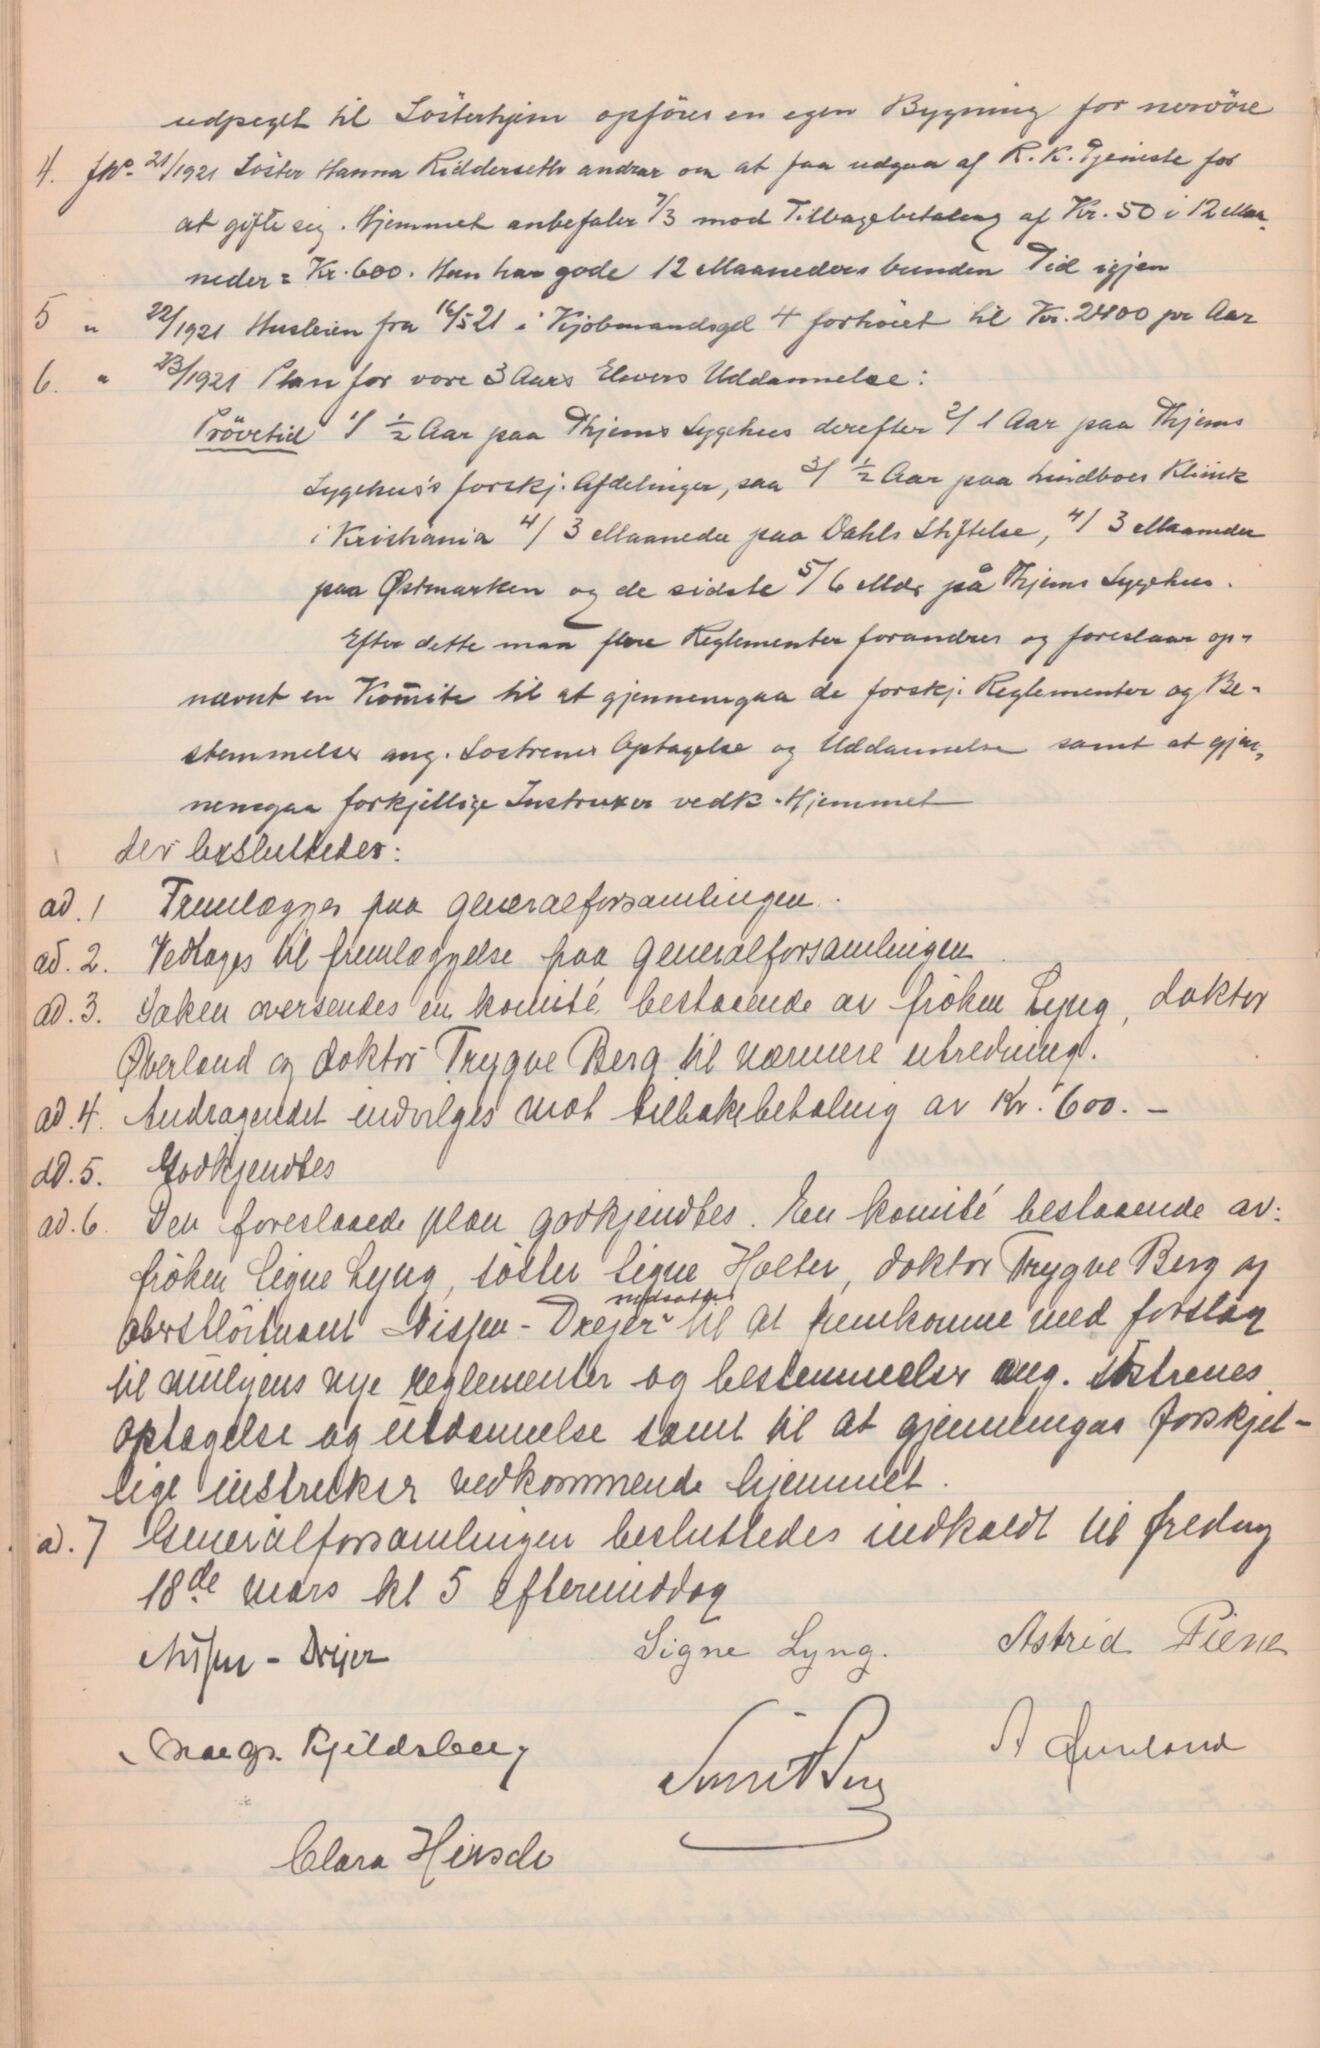 udpeget til Sösterhjem opföres en egen Bygning for nervöse
4. JNo. 21/1921 Söster Hanna Ridderseth andrar om at faa udgaa af R. K. Tjeneste for
at gifte sig. Hjemmet anbefaler 7/3 mod Tilbagebetaling af Kr. 50 i 12 Maa-
neder = Kr. 600. Hun har gode 12 Maaneders bunden Tid igjen
5 " 22/1921 Husleien fra 16/5 21 i Kjöbmandsgd 4 forhöiet til Kr. 2400 pr Aar
6. " 23/1921 Plan for vore 3 Aars Elevers Uddannelse:
Prövetid 1/ ½ Aar paa Thjems Sygehus derefter 2/ 1 Aar paa Thjems
Sygehus's forskj. Afdelinger, saa 3/ ½ Aar paa Lindboes Klinik
i Kristiania 4/ 3 Maaneder paa Dahls Stiftelse, 4/ 3 Maaneder
paa Østmarken og de sidste 5/ 6 Mdr på Thjems Sygehus.
Efter dette maa flere Reglementer forandres og foreslaar op-
nævnt en Komite til at gjennemgaa de forskj. Reglementer og Be-
stemmelser ang. Söstrenes Optagelse og Uddannelse samt at gjen-
nemgaa forkjellige Instruxer vedk. Hjemmet
der besluttedes:
ad. 1 Fremlægges paa generalforsamlingen.
ad. 2. Vedtages til fremlæggelse paa generalforsamlingen
ad. 3. Saken oversendes en komité bestaaende av fröken Lyng, doktor
Øverland og doktor Trygve Berg til nærmere utredning.
ad. 4. Andragendet indvilges mot tilbakebetaling av Kr. 600. –
ad. 5. Godkjendtes
ad. 6 Den foreslaaede plan godkjendtes. En komité bestaaende av:
fröken Signe Lyng, söster Signe Holter, doktor Trygve Berg og
oberstlöitnant Nissen-Drejer nedsattes til at fremkomme med forslag
til muligens nye reglementer og bestemmelser ang. söstrenes
optagelse og utdannelse samt til at gjennemgaa forskjel-
lige instrukser vedkommende hjemmet.
ad. 7 Generalforsamlingen besluttedes indkaldt til fredag
18de mars kl 5 eftermiddag
Nissen-Drejer Signe Lyng. Astrid Piene
Margr. Kjeldsberg Berg A Øverland
Clara Hirsch